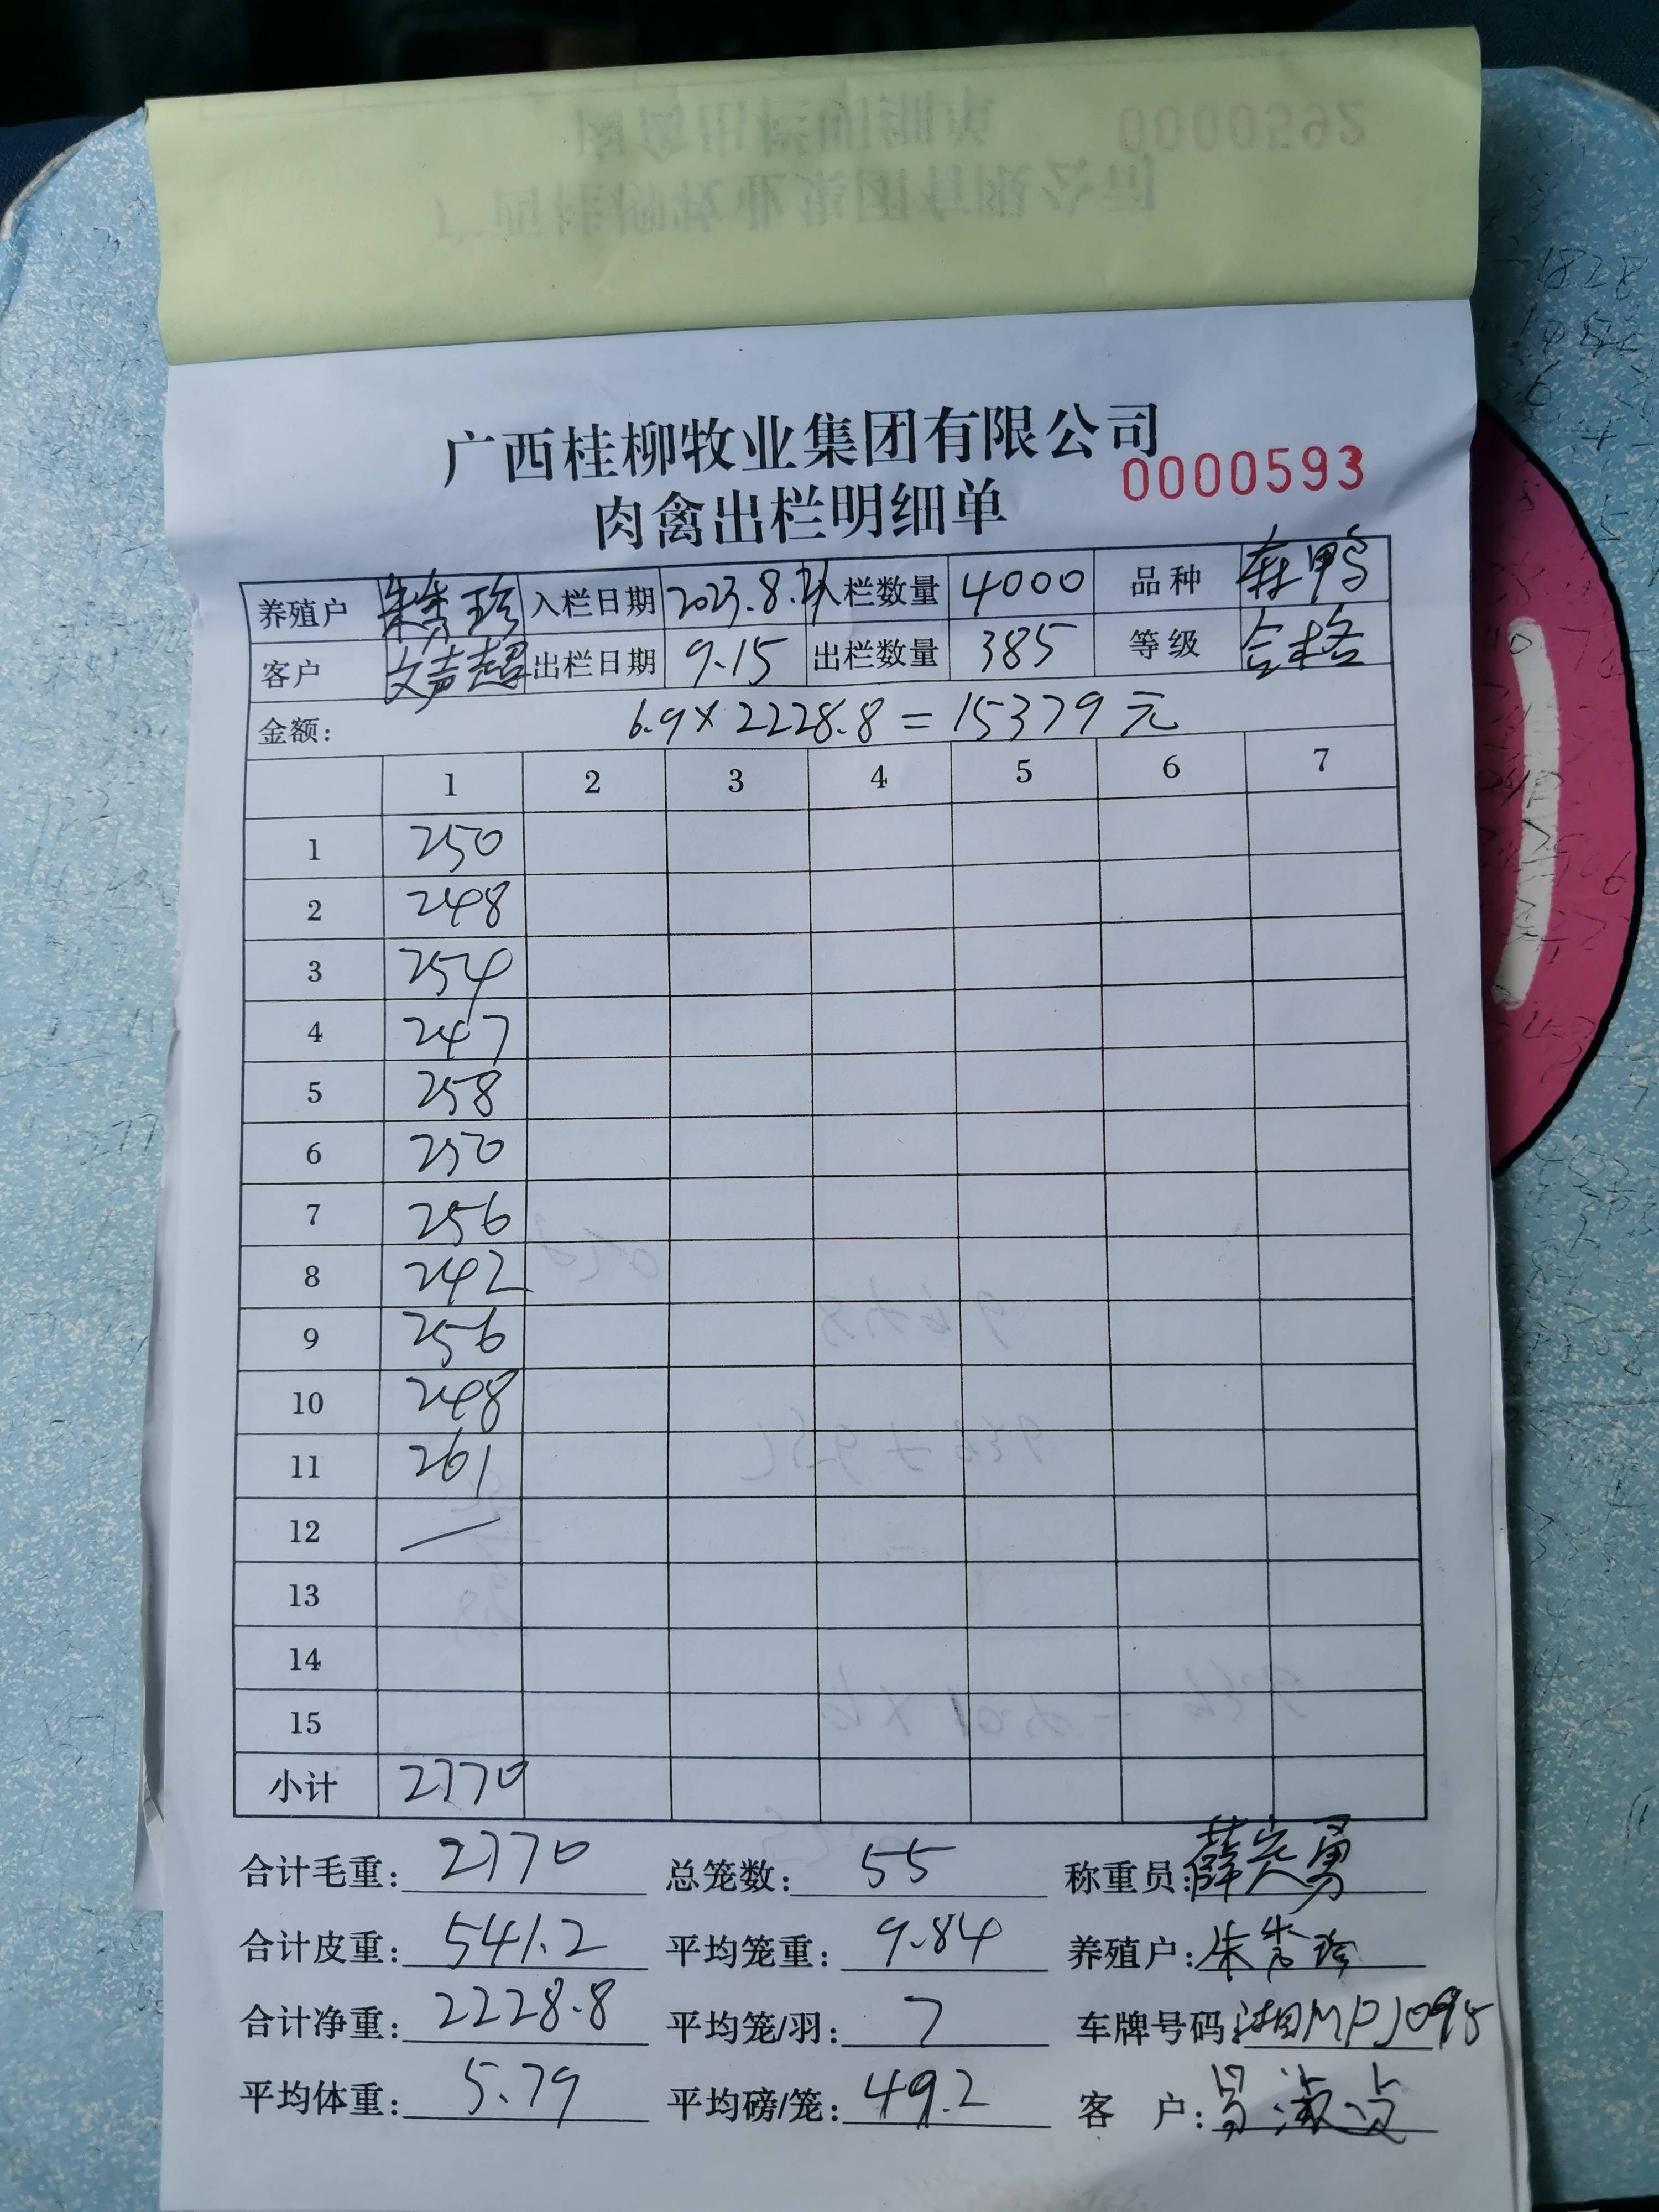 广西桂柳牧业集团有限公司
肉禽出栏明细单 0000593
养殖户 朱秀珍 入栏日期 2023.8.2 入栏数量 4000 品种 麻鸭
客户 文声超 出栏日期 9.15 出栏数量 385 等级 合格
金额: 6.9×2228.8=15379元
1 2 3 4 5 6 7
1 250
2 248
3 254
4 247
5 258
6 250
7 256
8 242
9 256
10 248
11 261
12
13
14
15
小计 2770
合计毛重: 2770 总笼数: 55 称重员: 薛定勇
合计皮重: 541.2 平均笼重: 9.84 养殖户: 朱秀珍
合计净重: 2228.8 平均笼/羽: 7 车牌号码: 湘MPJ098
平均体重: 5.79 平均磅/笼: 49.2 客 户: